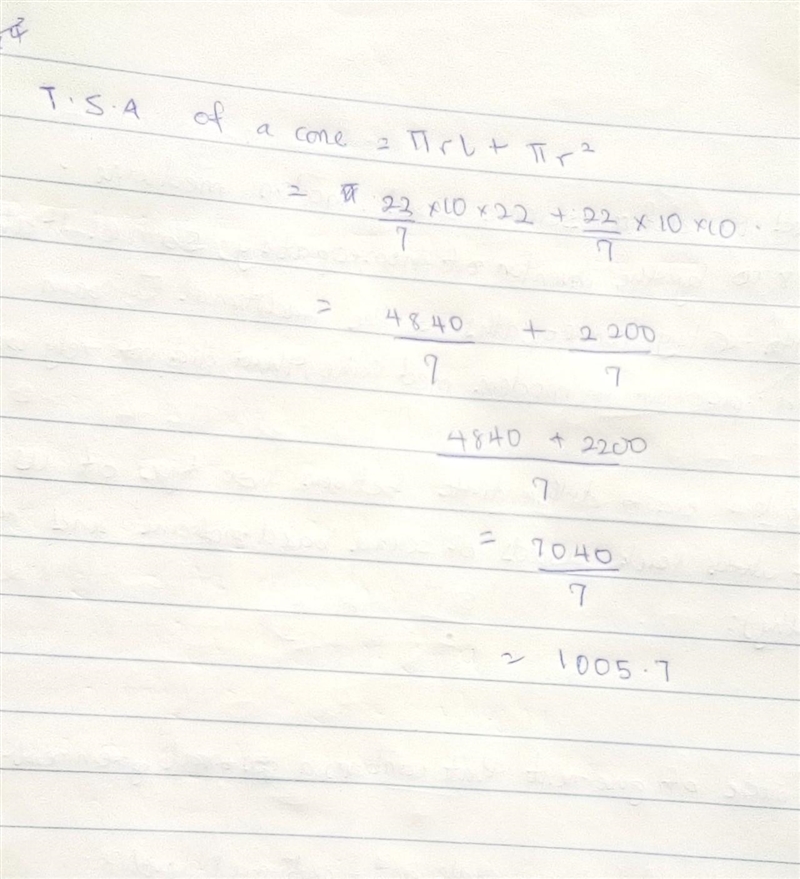 T.S.A of a cone = πrl + πr²
= 22/7 × 10 × 22 + 22/7 × 10 × 10.
= 4840/7 + 2200/7
4840 + 2200/7
= 7040/7
= 1005.7